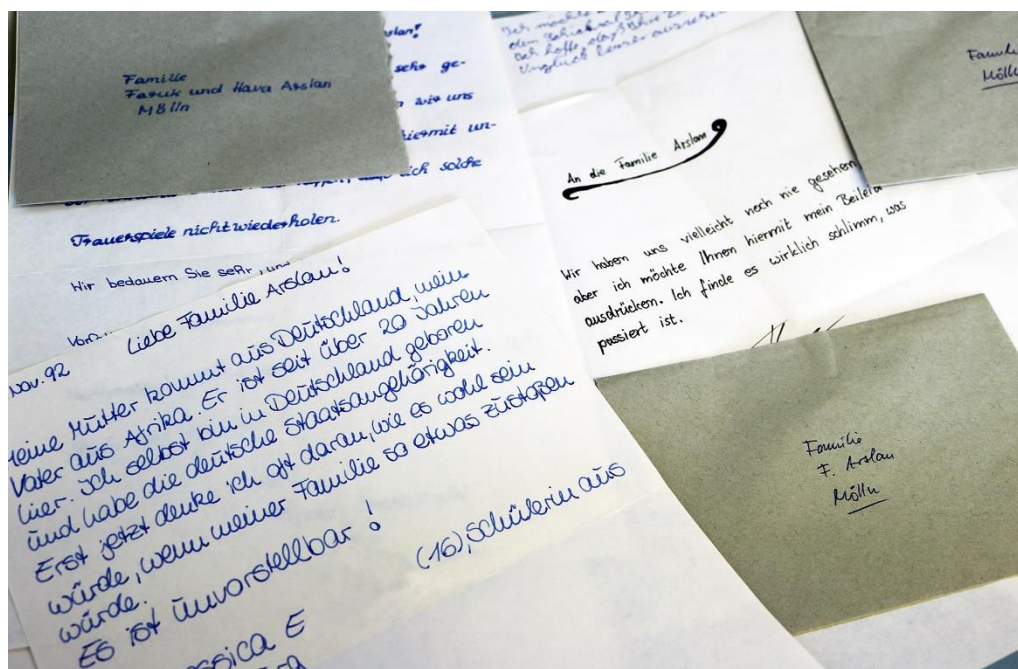 Familie
Faruk und Hava Arslan
Mölln
slan!
sehr ge-
wir uns
hiermit un-
daß sich solche
Trauerspiele nicht wiederholen.
Wir bedauern Sie sehr, und
Ich möchte
dem Schicksal
Ich hoffe, daß Ihre
Unglück besser aussehen
Familie
Mölln
An die Familie Arslan
Wir haben uns vielleicht noch nie gesehen
aber ich möchte Ihnen hiermit mein Beileid
ausdrücken. Ich finde es wirklich schlimm, was
passiert ist.
Familie
F. Arslan
Mölln
Nov. 92
Liebe Familie Arslan!
eine Mutter kommt aus Deutschland, mein
Vater aus Afrika. Er ist seit über 20 Jahren
hier. Ich selbst bin in Deutschland geboren
und habe die deutsche Staatsangehörigkeit.
Erst jetzt denke ich oft daran, wie es wohl sein
würde, wenn meiner Familie so etwas zustoßen
würde.
Es ist unvorstellbar!
(16), Schülerin aus
ssica E